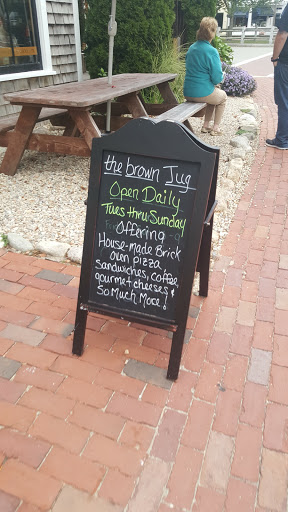 the brown Jug
Open Daily
Tues thru Sunday
Offering
House-made Brick
oven pizza,
sandwiches, coffee
gourmet cheeses &
So Much More!